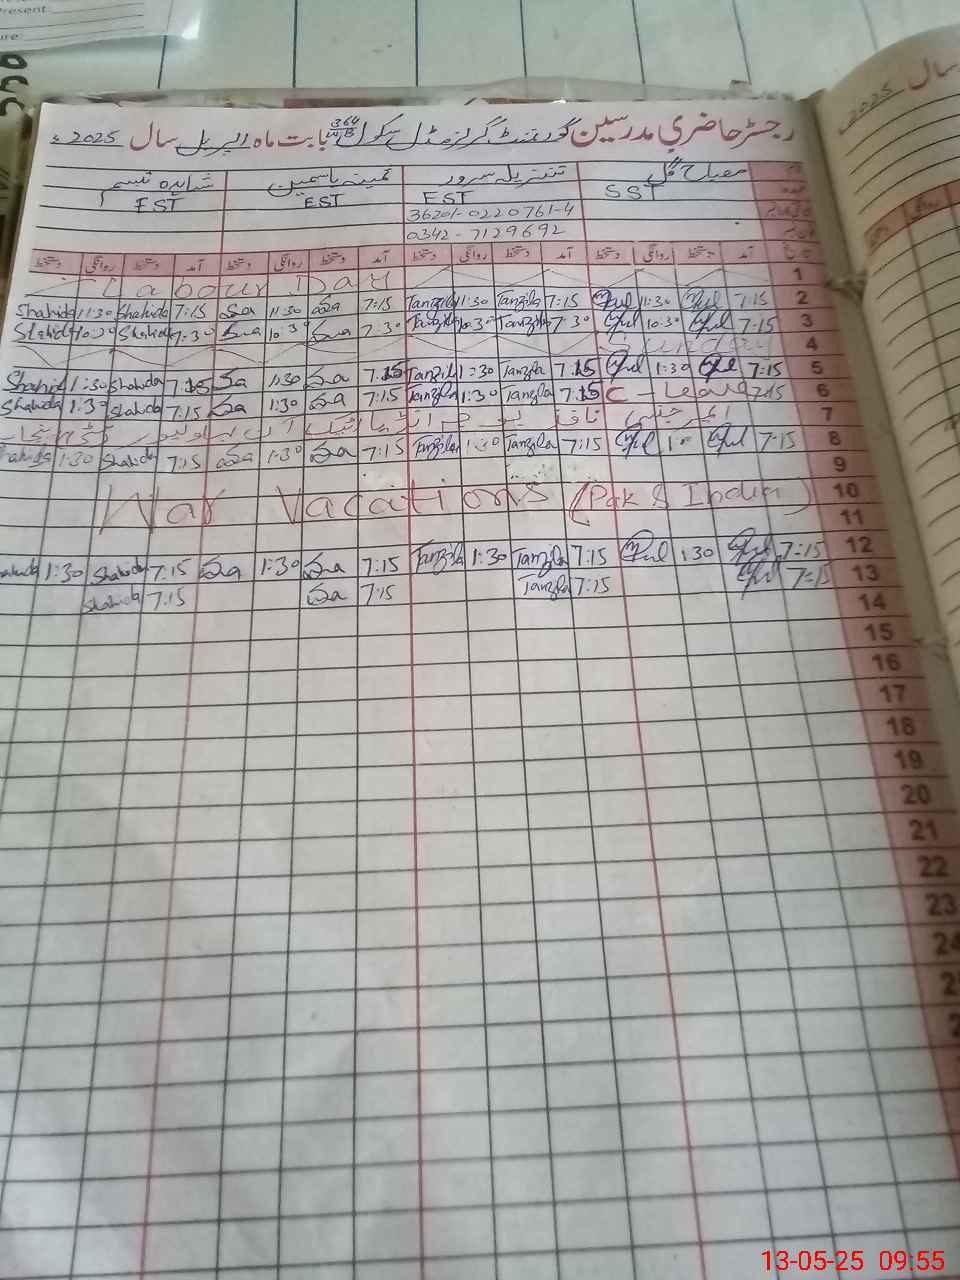 Present
رجسٹر حاضری مدرسین گورنمنٹ گرلز مڈل سکول 364 WB بابت ماہ اپریل سال 2025ء
مصباح گل تنزیلہ سرور ثمینہ یاسمین شاہدہ تبسم
SST EST EST EST
36201-0220761-4
0342-7129692
آمد دستخط روانگی دستخط آمد دستخط روانگی دستخط آمد دستخط روانگی دستخط آمد دستخط روانگی دستخط
Labour Day 1
Shahida 11:30 Shahida 7:15 11:30 7:15 Tanzila 11:30 Tanzila 7:15 Gul 11:30 Gul 7:15 2
Shahida 10:30 Shahida 7:30 10:30 7:30 Tanzila 10:30 Tanzila 7:30 Gul 10:30 Gul 7:15 3
Sunday 4
Shahida 1:30 Shahida 7:15 1:30 7:15 Tanzila 1:30 Tanzila 7:15 Gul 1:30 Gul 7:15 5
Shahida 1:30 Shahida 7:15 1:30 7:15 Tanzila 1:30 Tanzila 7:15 C-Leave 7:15 6
ایمرجنسی نافذ 7
Shahida 1:30 Shahida 7:15 1:30 7:15 Tanzila 1:30 Tanzila 7:15 Gul Gul 7:15 8
9
War Vacations (Pak & India) 10
11
Shahida 1:30 Shahida 7:15 1:30 7:15 Tanzila 1:30 Tanzila 7:15 Gul 1:30 Gul 7:15 12
Shahida 7:15 7:15 Tanzila 7:15 Gul 7:15 13
14
15
16
17
18
19
20
21
22
23
24
سال 2025ء
13-05-25 09:55